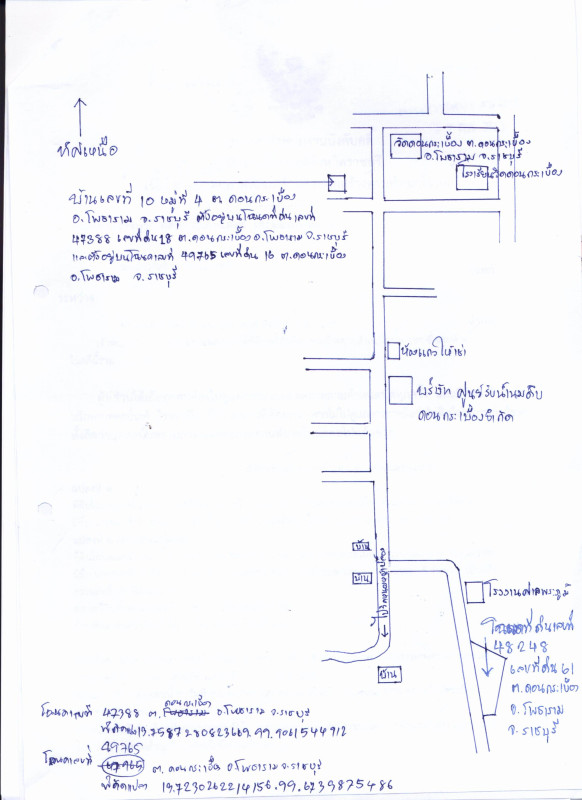 ทิศเหนือ
วัดดอนกระเบื้อง ต.ดอนกระเบื้อง
อ.โพธาราม จ.ราชบุรี
โรงเรียนวัดดอนกระเบื้อง
บ้านเลขที่ 10 หมู่ที่ 4 ต ดอนกระเบื้อง
อ.โพธาราม จ.ราชบุรี ตั้งอยู่บนโฉนดที่ดินเลขที่
47388 เลขที่ดิน 18 ต.ดอนกระเบื้อง อ.โพธาราม จ.ราชบุรี
และตั้งอยู่บนโฉนดเลขที่ 49765 เลขที่ดิน 16 ต.ดอนกระเบื้อง
อ.โพธาราม จ.ราชบุรี
ห้องแถวให้เช่า
บริษัท ศูนย์รับน้ำนมดิบ
ดอนกระเบื้องจำกัด
บ้าน
บ้าน
บ้าน
โรงงานศาลพระภูมิ
ที่ดินเลขที่
48248
เลขที่ดิน 61
ต.ดอนกระเบื้อง
อ.โพธาราม
จ.ราชบุรี
ดอนกระเบื้อง
โฉนดเลขที่ 47388 ต. อ.โพธาราม จ.ราชบุรี
49765
โฉนดเลขที่ ต. ดอนกระเบื้อง อ.โพธาราม จ.ราชบุรี